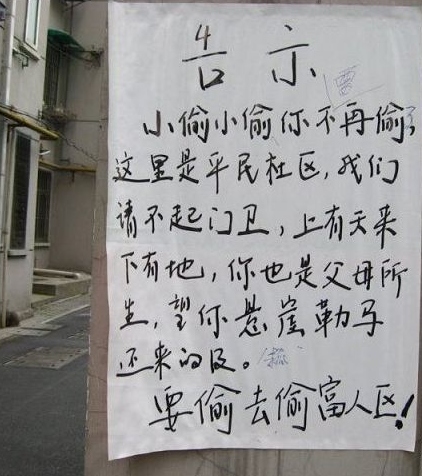 告示
要
小偷小偷你不再偷,
这里是平民社区,我们
请不起门卫,上有天来
下有地,你也是父母所
生,望你悬崖勒马
还来的及。
要偷去偷富人区!